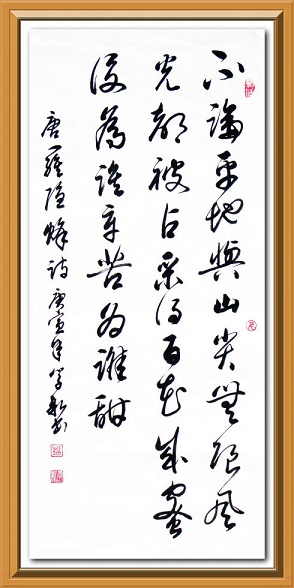 不論平地與山尖無限風
光都被占采得百花成蜜
後為誰辛苦为誰甜
唐羅隱蜂詩 庚寅年